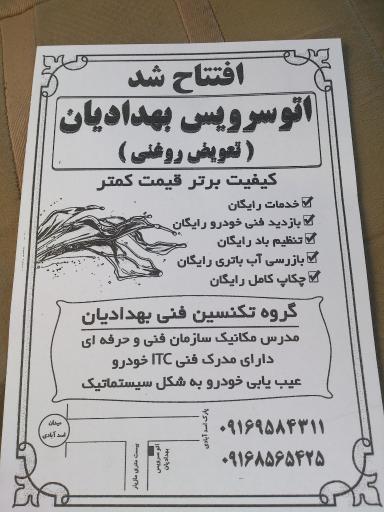 افتتاح شد
اتوسرویس بهدادیان
( تعویض روغنی )
کیفیت برتر قیمت کمتر
خدمات رایگان
بازدید فنی خودرو رایگان
تنظیم باد رایگان
بازرسی آب باتری رایگان
چکاپ کامل رایگان
گروه تکنسین فنی بهدادیان
مدرس مکانیک سازمان فنی و حرفه ای
دارای مدرک فنی ITC خودرو
عیب یابی خودرو به شکل سیستماتیک
۰۹۱۶۹۵۸۴۳۱۱
۰۹۱۶۸۵۶۵۴۲۵
پارک اسد آبادی
میدان
اسد آبادی
اتو سرویس
بهدادیان
بیست متری مازیار